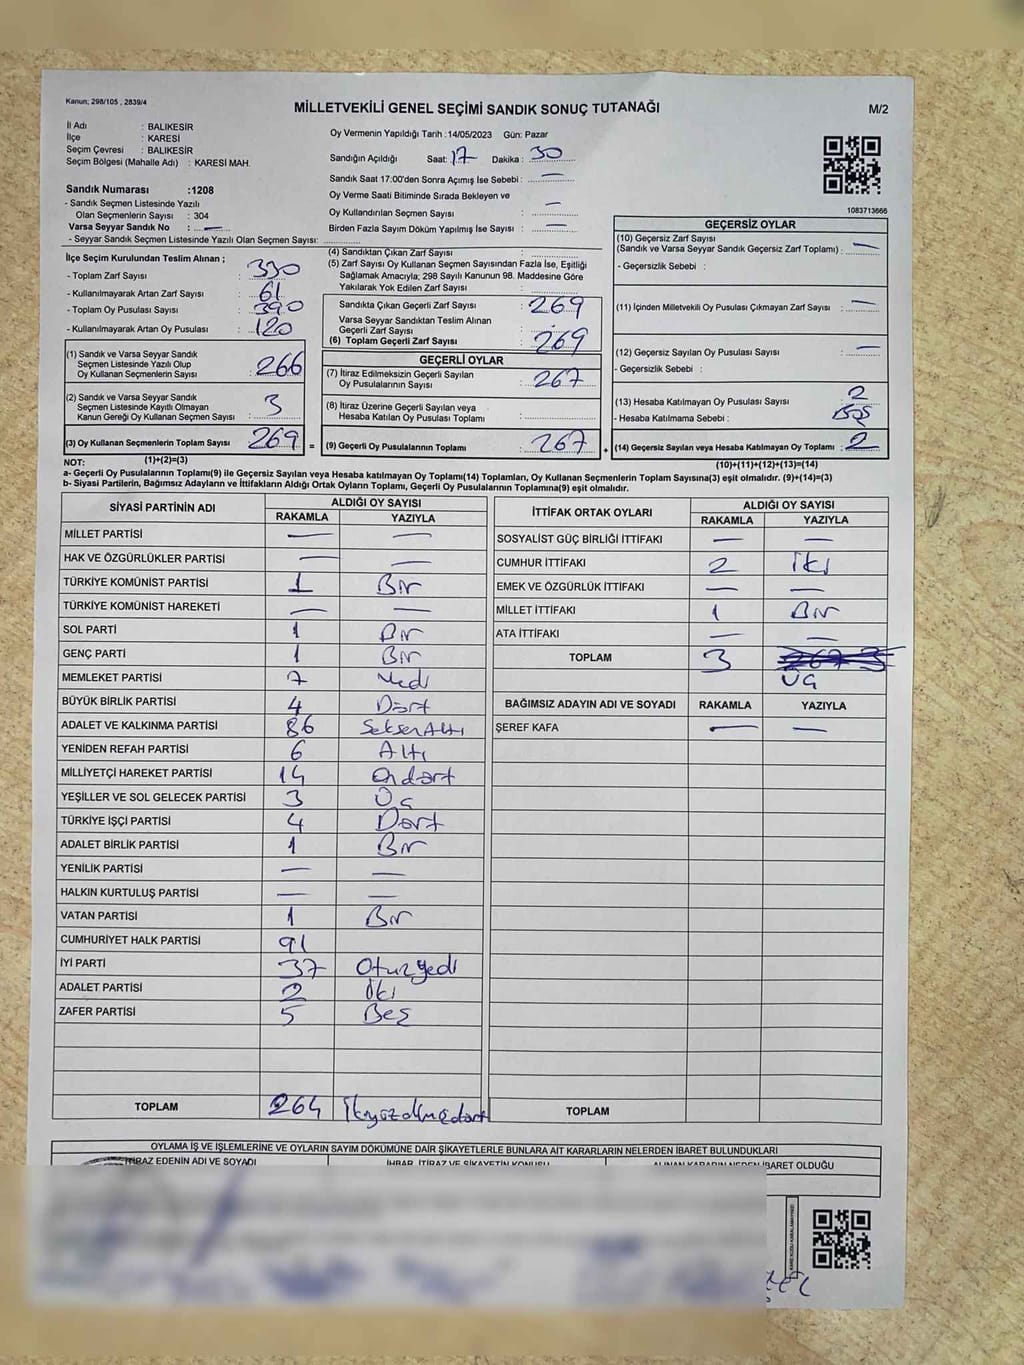 Kanun; 298/105 , 2839/4
MİLLETVEKİLİ GENEL SEÇİMİ SANDIK SONUÇ TUTANAĞI
M/2
İl Adı : BALIKESİR
İlçe : KARESİ
Seçim Çevresi : BALIKESİR
Seçim Bölgesi (Mahalle Adı) : KARESİ MAH.
Sandık Numarası :1208
- Sandık Seçmen Listesinde Yazılı
Olan Seçmenlerin Sayısı : 304
Varsa Seyyar Sandık No : —
- Seyyar Sandık Seçmen Listesinde Yazılı Olan Seçmen Sayısı:
Oy Vermenin Yapıldığı Tarih :14/05/2023 Gün: Pazar
Sandığın Açıldığı Saat: 17 Dakika : 30
Sandık Saat 17:00'den Sonra Açımış İse Sebebi : —
Oy Verme Saati Bitiminde Sırada Bekleyen ve
Oy Kullandırılan Seçmen Sayısı : —
Birden Fazla Sayım Döküm Yapılmış İse Sayısı : —
1083713666
İlçe Seçim Kurulundan Teslim Alınan ;
- Toplam Zarf Sayısı : 330
- Kullanılmayarak Artan Zarf Sayısı : 61
- Toplam Oy Pusulası Sayısı : 390
- Kullanılmayarak Artan Oy Pusulası : 120
(1) Sandık ve Varsa Seyyar Sandık
Seçmen Listesinde Yazılı Olup
Oy Kullanan Seçmenlerin Sayısı : 266
(2) Sandık ve Varsa Seyyar Sandık
Seçmen Listesinde Kayıtlı Olmayan
Kanun Gereği Oy Kullanan Seçmen Sayısı : 3
(3) Oy Kullanan Seçmenlerin Toplam Sayısı : 269 =
(1)+(2)=(3)
(4) Sandıktan Çıkan Zarf Sayısı :
(5) Zarf Sayısı Oy Kullanan Seçmen Sayısından Fazla İse, Eşitliği
Sağlamak Amacıyla; 298 Sayılı Kanunun 98. Maddesine Göre
Yakılarak Yok Edilen Zarf Sayısı :
Sandıkta Çıkan Geçerli Zarf Sayısı : 269
Varsa Seyyar Sandıktan Teslim Alınan
Geçerli Zarf Sayısı :
(6) Toplam Geçerli Zarf Sayısı : 269
GEÇERLİ OYLAR
(7) İtiraz Edilmeksizin Geçerli Sayılan
Oy Pusulalarının Sayısı : 267
(8) İtiraz Üzerine Geçerli Sayılan veya
Hesaba Katılan Oy Pusulası Toplamı :
(9) Geçerli Oy Pusulalarının Toplamı : 267 +
GEÇERSİZ OYLAR
(10) Geçersiz Zarf Sayısı
(Sandık ve Varsa Seyyar Sandık Geçersiz Zarf Toplamı) : —
- Geçersizlik Sebebi :
(11) İçinden Milletvekili Oy Pusulası Çıkmayan Zarf Sayısı : —
(12) Geçersiz Sayılan Oy Pusulası Sayısı : —
- Geçersizlik Sebebi :
(13) Hesaba Katılmayan Oy Pusulası Sayısı : 2
- Hesaba Katılmama Sebebi : Boş
(14) Geçersiz Sayılan veya Hesaba Katılmayan Oy Toplamı : 2
(10)+(11)+(12)+(13)=(14)
NOT:
a- Geçerli Oy Pusulalarının Toplamı(9) ile Geçersiz Sayılan veya Hesaba katılmayan Oy Toplamı(14) Toplamları, Oy Kullanan Seçmenlerin Toplam Sayısına(3) eşit olmalıdır. (9)+(14)=(3)
b- Siyasi Partilerin, Bağımsız Adayların ve İttifakların Aldığı Ortak Oyların Toplamı, Geçerli Oy Pusulalarının Toplamına(9) eşit olmalıdır.
SİYASİ PARTİNİN ADI ALDIĞI OY SAYISI
RAKAMLA YAZIYLA
MİLLET PARTİSİ — —
HAK VE ÖZGÜRLÜKLER PARTİSİ — —
TÜRKİYE KOMÜNİST PARTİSİ 1 Bir
TÜRKİYE KOMÜNİST HAREKETİ — —
SOL PARTİ 1 Bir
GENÇ PARTİ 1 Bir
MEMLEKET PARTİSİ 7 Yedi
BÜYÜK BİRLİK PARTİSİ 4 Dört
ADALET VE KALKINMA PARTİSİ 86 SeksenAltı
YENİDEN REFAH PARTİSİ 6 Altı
MİLLİYETÇİ HAREKET PARTİSİ 14 Ondört
YEŞİLLER VE SOL GELECEK PARTİSİ 3 Üç
TÜRKİYE İŞÇİ PARTİSİ 4 Dört
ADALET BİRLİK PARTİSİ 1 Bir
YENİLİK PARTİSİ — —
HALKIN KURTULUŞ PARTİSİ — —
VATAN PARTİSİ 1 Bir
CUMHURİYET HALK PARTİSİ 91
İYİ PARTİ 37 Otuzyedi
ADALET PARTİSİ 2 İki
ZAFER PARTİSİ 5 Beş
TOPLAM 264
İTTİFAK ORTAK OYLARI ALDIĞI OY SAYISI
RAKAMLA YAZIYLA
SOSYALİST GÜÇ BİRLİĞİ İTTİFAKI — —
CUMHUR İTTİFAKI 2 İki
EMEK VE ÖZGÜRLÜK İTTİFAKI — —
MİLLET İTTİFAKI 1 Bir
ATA İTTİFAKI — —
TOPLAM 3 Üç
BAĞIMSIZ ADAYIN ADI VE SOYADI RAKAMLA YAZIYLA
ŞEREF KAFA — —
TOPLAM
OYLAMA İŞ VE İŞLEMLERİNE VE OYLARIN SAYIM DÖKÜMÜNE DAİR ŞİKAYETLERLE BUNLARA AİT KARARLARIN NELERDEN İBARET BULUNDUKLARI
İTİRAZ EDENİN ADI VE SOYADI İHBAR, İTİRAZ VE ŞİKAYETİN KONUSU ALINAN KARARIN NEDEN İBARET OLDUĞU